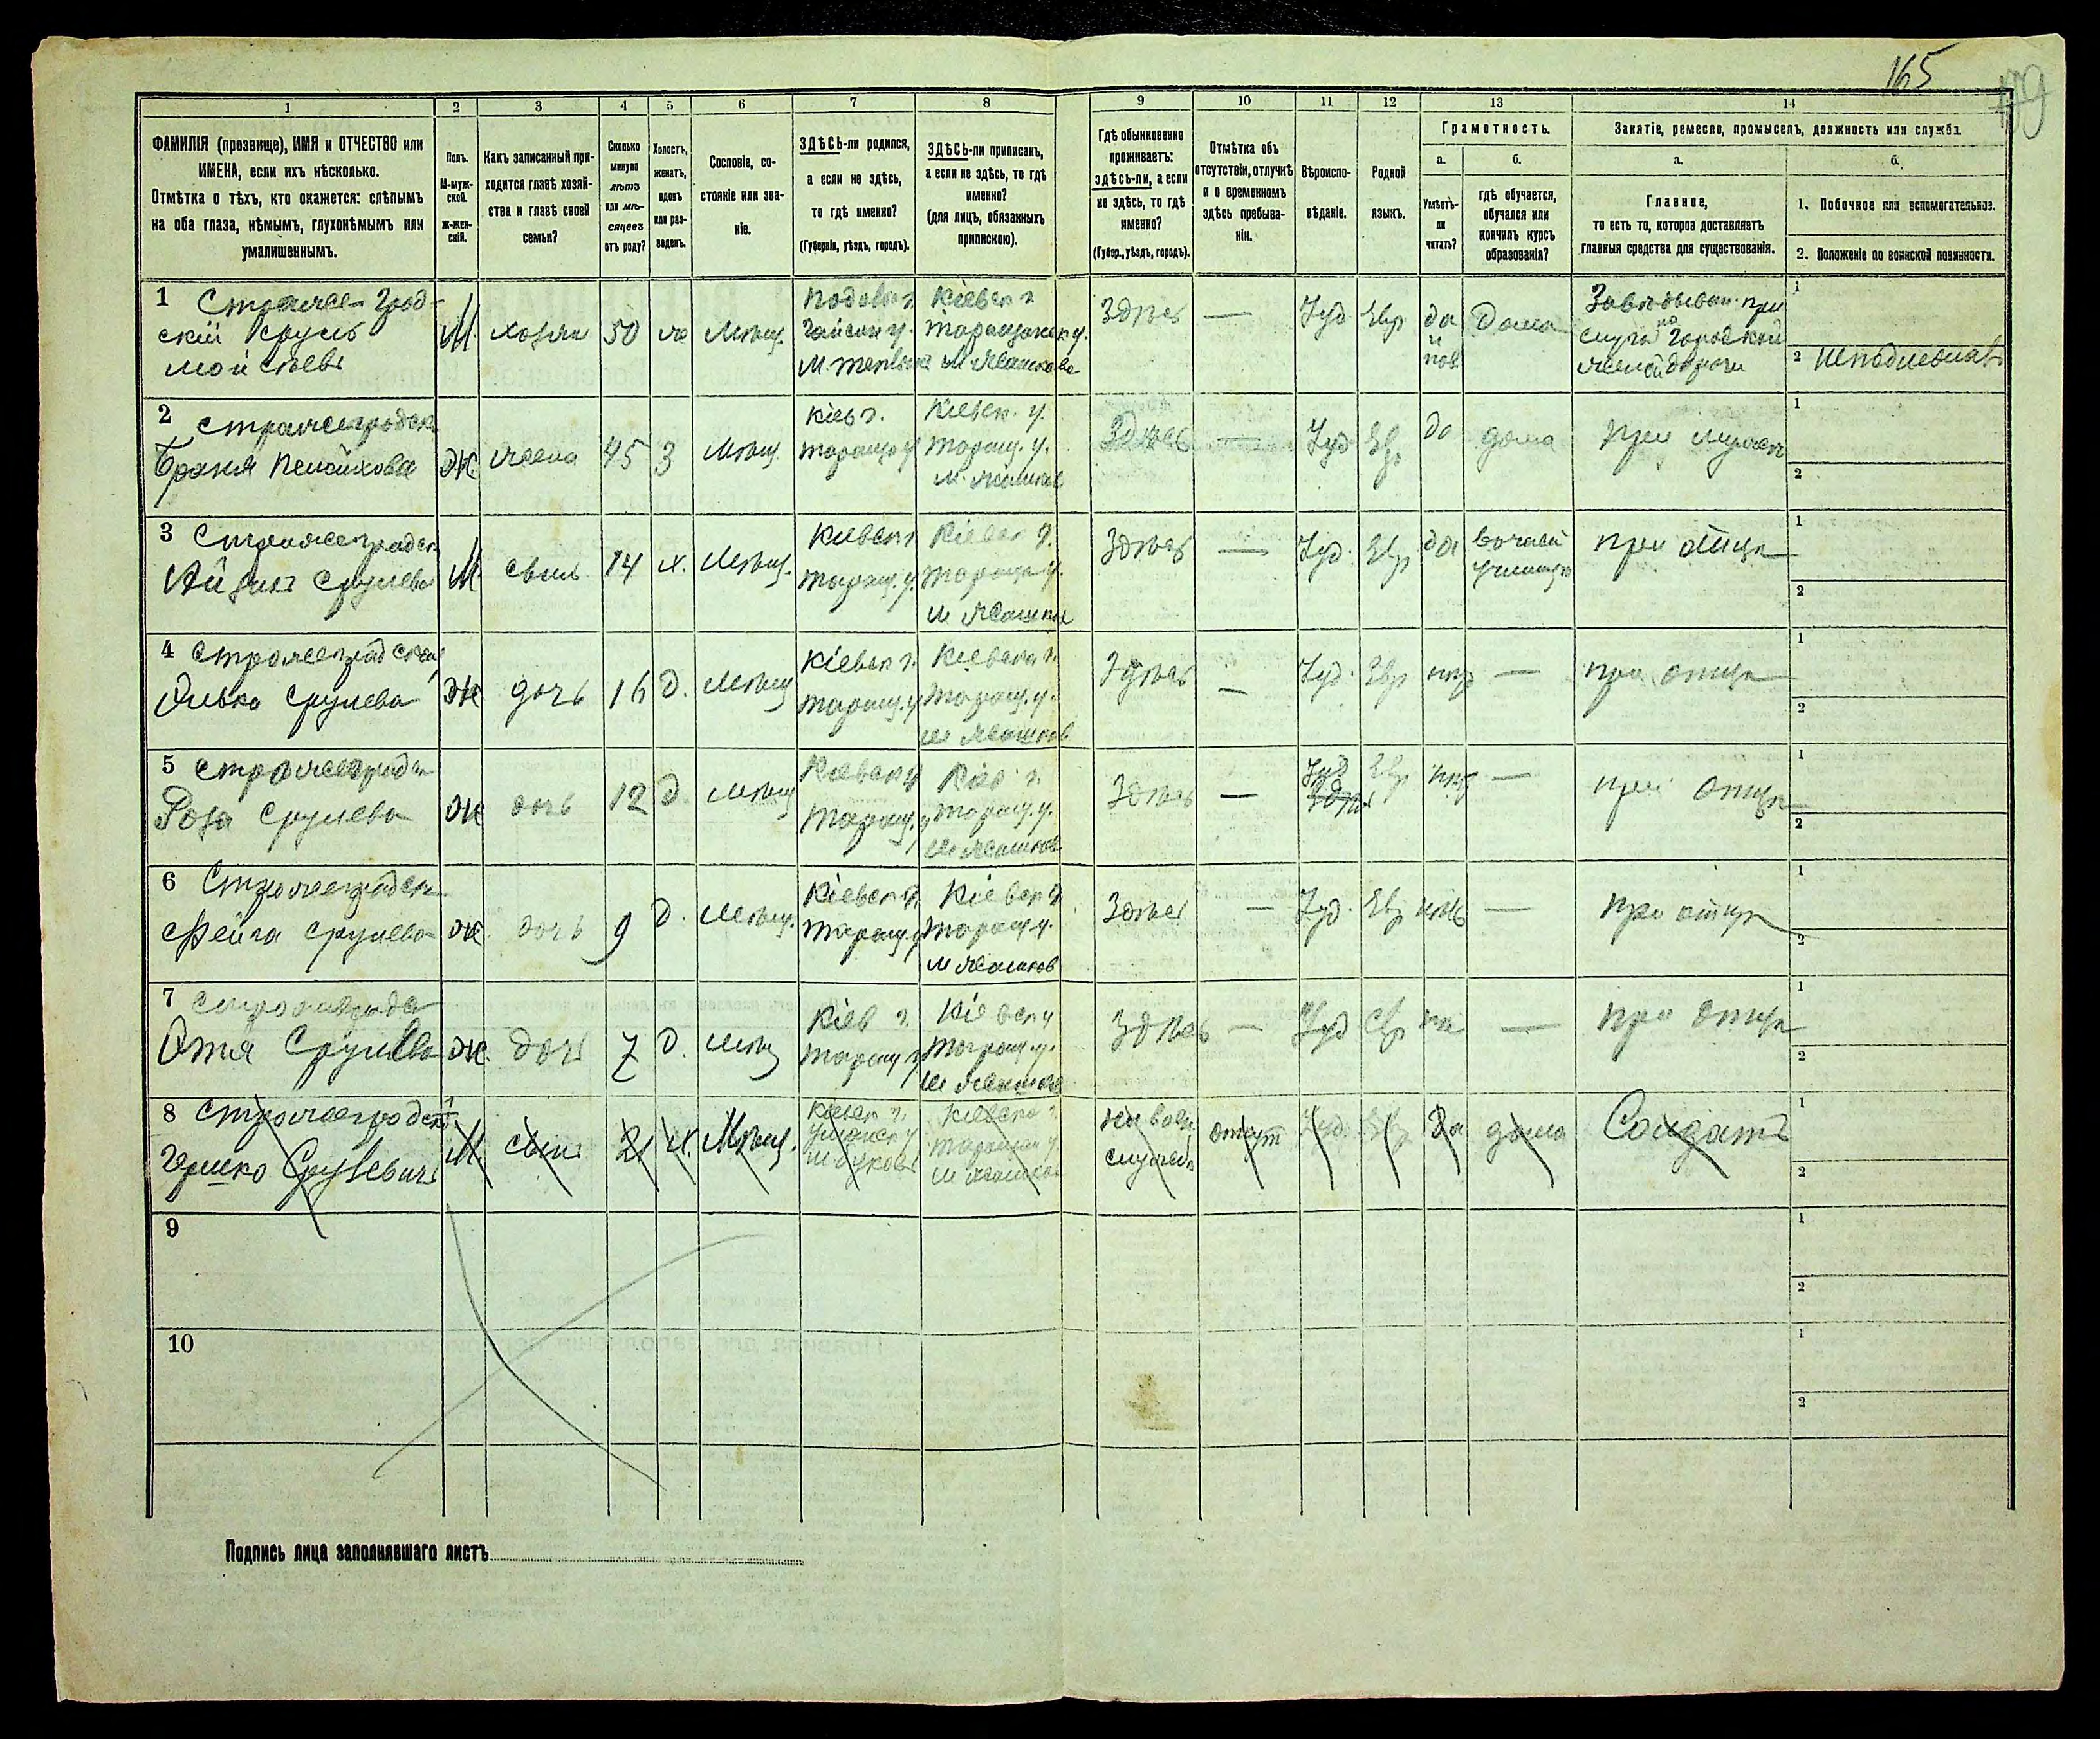 165
179
1
2
3
4
5
6
7
8
9
10
11
12
13
14
ФАМИЛІЯ (прозвище), ИМЯ и ОТЧЕСТВО или
ИМЕНА, если ихъ нѣсколько.
Отмѣтка о тѣхъ, кто окажется: слѣпымъ
на оба глаза, нѣмымъ, глухонѣмымъ или
умалишеннымъ.
Полъ.
М-муж-
ской.
Ж-жен-
скій.
Какъ записанный при-
ходится главѣ хозяй-
ства и главѣ своей
семьи?
Сколько
минуло
лѣтъ
или мѣ-
сяцевъ
отъ роду?
Холостъ,
женатъ,
вдовъ
или раз-
веденъ.
Сословіе, со-
стояніе или зва-
ніе.
ЗДѢСЬ-ли родился,
а если не здѣсь,
то гдѣ именно?
(Губернія, уѣздъ, городъ).
ЗДѢСЬ-ли приписанъ,
а если не здѣсь, то гдѣ
именно?
(для лицъ, обязанныхъ
припискою).
Гдѣ обыкновенно
проживаетъ:
здѣсь-ли, а если
не здѣсь, то гдѣ
именно?
(Губер., уѣздъ, городъ).
Отмѣтка объ
отсутствіи, отлучкѣ
и о временномъ
здѣсь пребыва-
ніи.
Вѣроиспо-
вѣданіе.
Родной
языкъ.
Грамотность.
а.
Умѣетъ-
ли
читать?
б.
гдѣ обучается,
обучался или
кончилъ курсъ
образованія?
Занятіе, ремесло, промыселъ, должность или служба.
а.
Главное,
то есть то, которое доставляетъ
главныя средства для существованія.
б.
1. Побочное или вспомогательное.
2. Положеніе по воинской повинности.
1 Стражее-Град-
скій Сруль
Мойсеевъ
М.
хозяи
50
же
Мѣщ.
Подольс г.
Гайсин у.
Киевск г.
Таращанск у.
М. Жашкове
Здѣсь
—
Іуд
Евр
да
и
Дома
Городской
1
2
2 Стражегродск
Ж
жена
45
З
Мѣщ
Кіев г.
Таращ у
Киевск. г.
Таращ. у.
м. Жашков
Здѣсь
—
Іуд
Ев
да
дома
При мужѣ
1
2
3 Стражеградск
Айзикъ Срулевъ
М.
сынъ
14
х.
Мѣщ.
Киевск г.
Таращ. у.
Киевск г.
Таращ у.
м Жашков
Здѣсь
—
Іуд.
Евр
да
при отцѣ
1
2
4 Стражеградская
Ривка Срулева
Ж
дочь
16
д.
Мѣщ
Кіевск г.
Таращ. у
Киевск г.
Таращ. у.
м Жашков
Здѣсь
—
Іуд.
Евр
—
при отцѣ
1
2
5 Стражеградск
Роза Срулева
Ж
дочь
12
д
Мѣщ
Киевск г
Таращ. у
Кіев г.
Таращ. у.
м Жашков
Здѣсь
—
Іуд
Евр
—
при отцѣ
1
2
6 Стражеградск
Фейга Срулева
Ж
дочь
9
д.
Мѣщ.
Кіевск г.
Таращ у
Кіевск г
Таращ у.
м Жашков
Здѣсь
—
Іуд.
Евр
нѣтъ
—
при отцѣ
1
2
7
Срулева
Ж.
дочь
7
д.
Мѣщ
Кіев г.
Таращ у
Кіевск г
Таращ. у.
м Жашков
Здѣсь
—
Іуд
Евр
—
при отцѣ
1
2
8 Стражегродскій
Гершко Срулевичъ
М.
сынъ
21
х.
Мѣщ.
Киевск г.
Уманск у
Киевск г.
Таращан у
м Жашков
На воен
службе
отсут
Іуд.
Евр
Да
дома
Солдатъ
1
2
9
1
2
10
1
2
Подпись лица заполнявшаго листъ